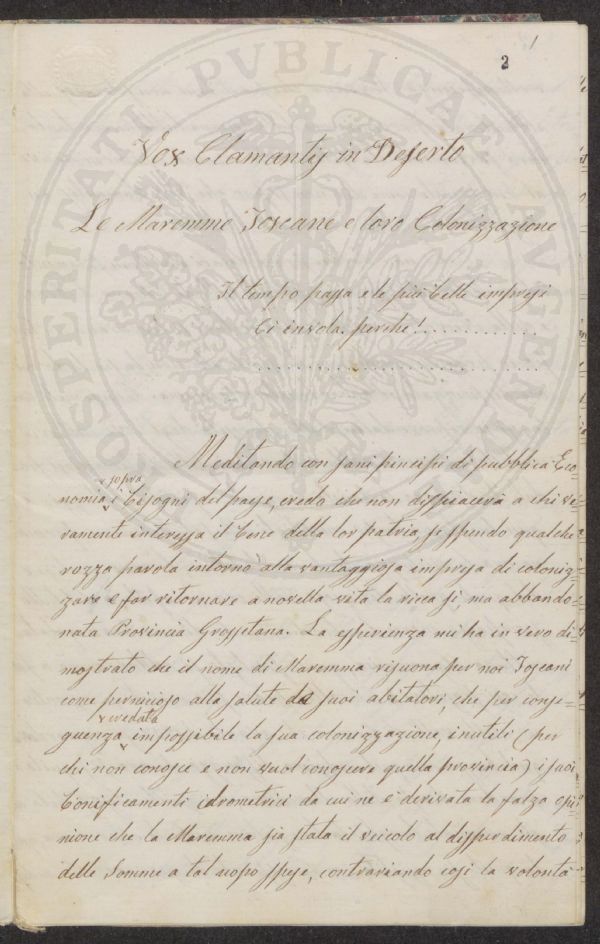 1
2
PROSPERITATI PVBLICAE AVGENDAE
Vox Clamantis in Deserto
Le Maremme Toscane e loro Colonizzazione
Il tempo passa e le più belle imprese
Ci invola. perche!............
............................
Meditando con sani principj di pubblica Eco=
sopra
nomia i bisogni del paese, credo che non dispiacerà a chi ve=
ramente interessa il bene della lor patria, se spendo qualche
rozza parola intorno alla vantaggiosa impresa di coloniz=
zare e far ritornare a novella vita la ricca si, ma abbando=
nata Provincia Grossetana. La esperienza mi ha in vero di=
mostrato che il nome di Maremma risuona per noi Toscani
come pernicioso alla salute de suoi abitatori, che per conse=
credata
guenza impossibile la sua colonizzazione, inutili (per
chi non conosce e non vuol conoscere quella provincia) i suoi
bonificamenti idrometrici da cui ne è derivata la falza opi=
nione che la Maremma sia stata il veicolo al disperdimento
delle Somme a tal uopo spese, contrariando così la volontà